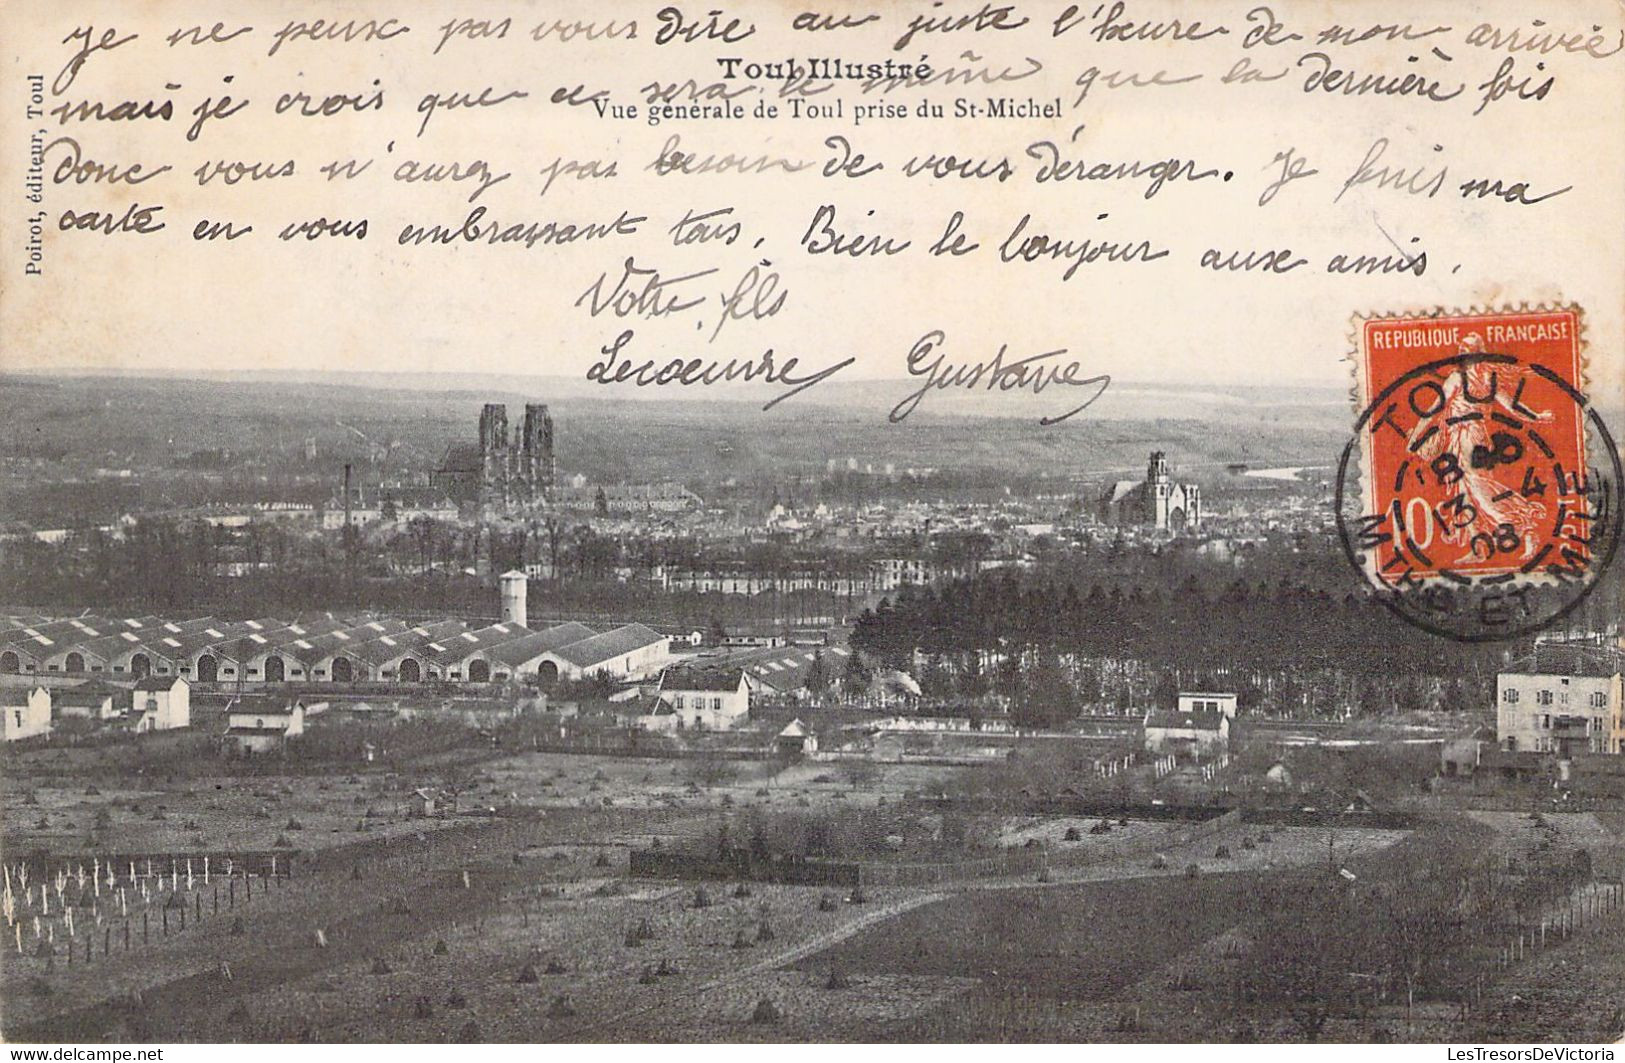 je ne peux pas vous dire au juste l'heure de mon arrivée
Toul Illustré
mais je crois que ce sera le même que la dernière fois
Vue générale de Toul prise du St-Michel
donc vous n'aurez pas besoin de vous déranger. Je finis ma
carte en vous embrassant tous. Bien le bonjour aux amis.
Votre fils
Lecoeuvre Gustave
Poirot, éditeur, Toul
REPUBLIQUE FRANÇAISE
10
TOUL
13 -4
08
MTHE ET MLLE
LesTresorsDeVictoria